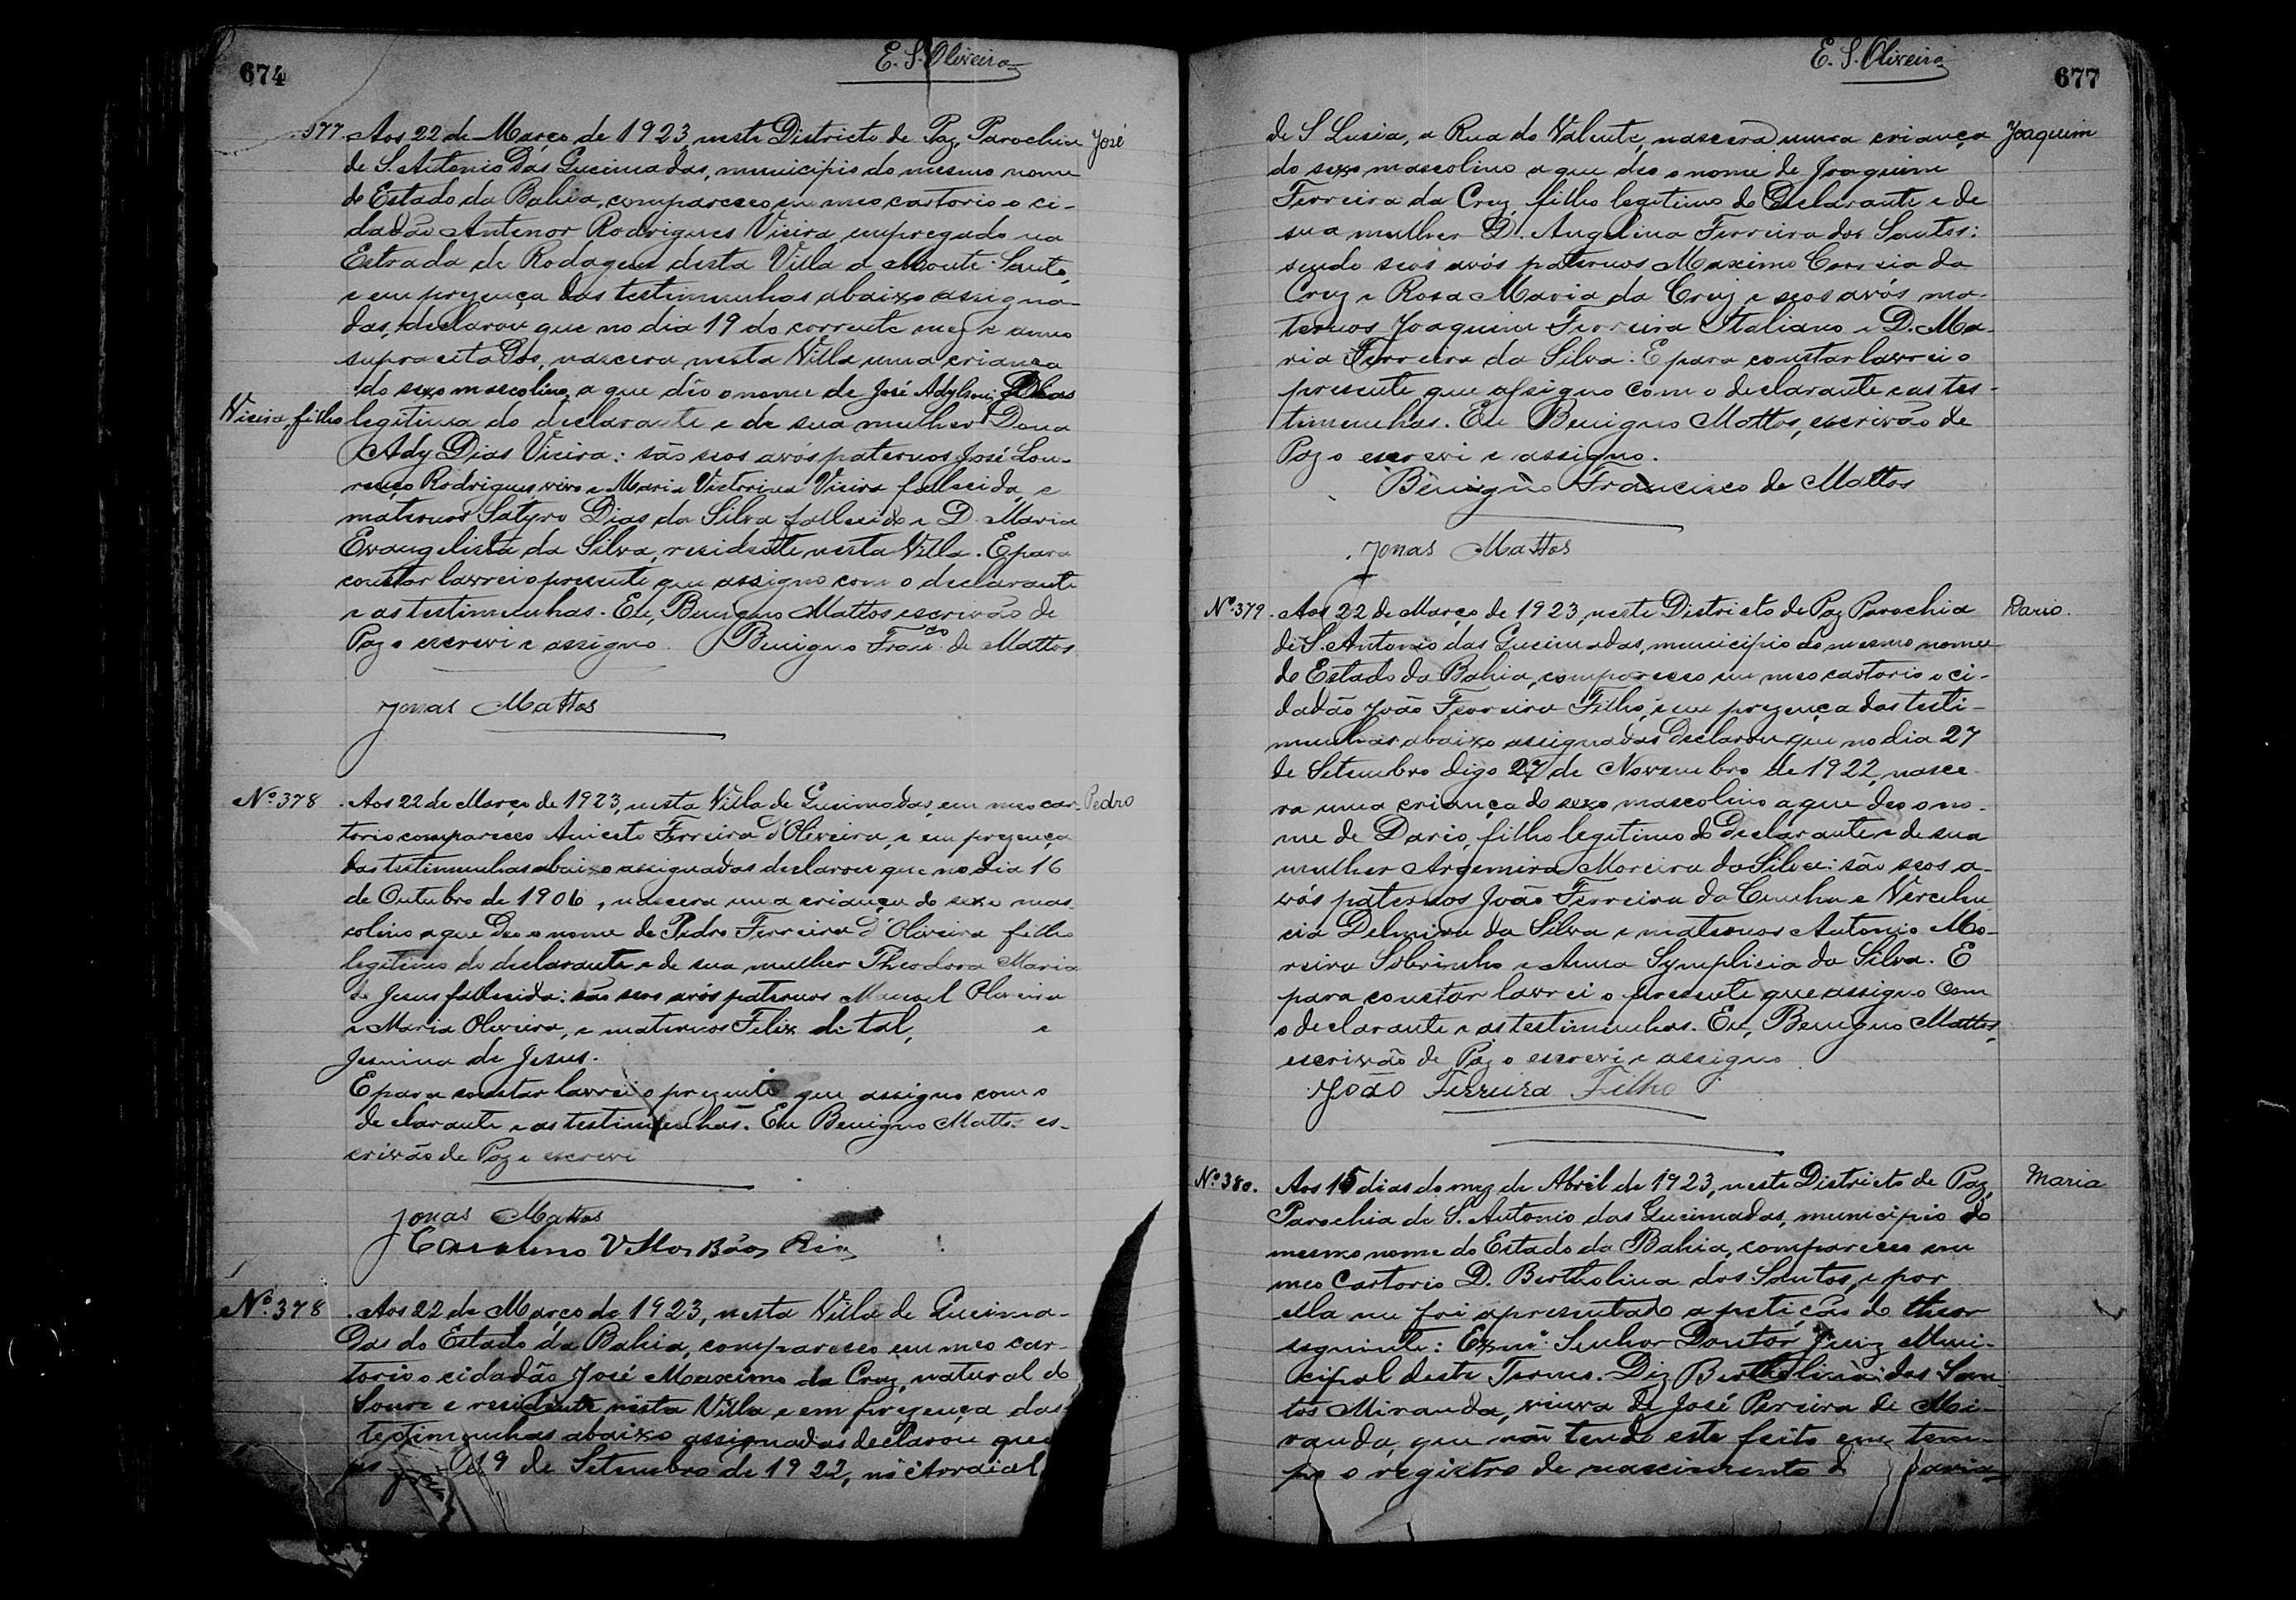 674
E. S. Oliveira
377. Aos 22 de Março de 1923, neste Districto de Paz, Parochia José
de S. Antonio das Queimadas, municipio do mesmo nome
do Estado da Bahia, compareceo em meo cartorio o ci-
dadão Antenor Rodrigues Vieira, empregado na
Estrada de Rodagem desta Villa a Monte Santo,
e em prezença das testimunhas abaixo assigna-
das, declarou que no dia 19 do corrente mez e anno
supra citados, nascera nesta Villa uma criança
do sexo mascolino, a que dêo o nome de José Adylson Dias
Vieira, filho legitimo do declarante e de sua mulher Dona
Ady Dias Vieira: são seos avós paternos José Lou-
renço Rodrigues, vivo e Maria Victorina Vieira fallecida, e
maternos Satyro Dias da Silva fallecido e D. Maria
Evangelista da Silva, residente nesta Villa. E para
constar lavrei o presente, que assigno com o declarante
e as testimunhas. Eu, Benigno Mattos escrivão de
Paz o escrevi e assigno. Benigno Franco. de Mattos
Jonas Mattos
Nº 378. Aos 22 de Março de 1923, nesta Villa de Queimadas, em meo car- Pedro
torio compareceo Aniceto Ferreira d'Oliveira, e em prezença
das testimunhas abaixo assignadas declarou que no dia 16
de Outubro de 1906, nascera uma criança do sexo mas-
colino a que deo o nome de Pedro Ferreira d'Oliveira filho
legitimo do declarante e de sua mulher Theodora Maria
de Jesus fallecida: são seos avós paternos Manoel Oliveira
e Maria Oliveira, e maternos Felix de tal, e
Jesuina de Jesus.
E para constar lavrei o prezente que assigno com o
declarante e as testimunhas. Eu Benigno Mattos es-
crivão de Paz o escrevi
Jonas Mattos
Vllas Bôas
Nº 378. Aos 22 de Março de 1923, nesta Villa de Queima-
das do Estado da Bahia, compareceo em meo car-
torio o cidadão José Maximo da Cruz, natural do
Soure e residente nesta Villa e em prezença das
testimunhas abaixo assignadas declarou que
19 de Setembro de 1922, no Arraial
E. S. Oliveira
677
de S Lusia, a Rua do Valente, nascera uma criança Joaquim
do sexo mascolino a que deo o nome de Joaquim
Ferreira da Cruz, filho legitimo do Declarante e de
sua mulher D. Angelina Ferreira dos Santos:
sendo seos avós paternos Maximo Correia da
Cruz e Rosa Maria da Cruz, e seos avós ma-
ternos Joaquim Ferreira Italiano e D. Ma-
ria Ferreira da Silva. E para constar lavrei o
presente que assigno com o declarante e as tes-
timunhas. Eu Benigno Mattos, escrivão de
Paz o escrevi e assigno.
Benigno Francisco de Mattos
Jonas Mattos
Nº 379. Aos 22 de Março de 1923, neste Districto de Paz Parochia Dario.
de S. Antonio das Queimadas, municipio do mesmo nome
do Estado da Bahia, compareceo em meo cartorio o ci-
dadão João Ferreira Filho, e em prezença das testi-
munhas abaixo assignadas declarou que no dia 27
de Setembro digo 27 de Novembro de 1922, nasce-
ra uma criança do sexo mascolino a que deo o no-
me de Dario, filho legitimo do declarante e de sua
mulher Argemira Moreira da Silva: são seos a-
vós paternos João Ferreira da Cunha e
Delmira da Silva e maternos Antonio Mo-
reira Sobrinho e Anna Symplicia da Silva. E
para constar lavrei o presente que assigno com
o declarante e as testimunhas. Eu, Benigno Mattos,
escrivão de Paz o escrevi e assigno
João Ferreira Filho
Nº 380. Aos 15 dias do mez de Abril de 1923, neste Districto de Paz, Maria
Parochia de S. Antonio das Queimadas, municipio do
mesmo nome do Estado da Bahia, compareceo em
meo Cartorio D. Bertholina dos Santos, e por
ella me foi apresentado a petição do theor
seguinte: Exmº. Senhor Doutor Juiz Muni-
cipal deste Termo. Diz Bertholina dos San-
tos Miranda, viuva de José Pereira de Mi-
randa, que não tendo este feito em tem-
po o registro de nascimento d